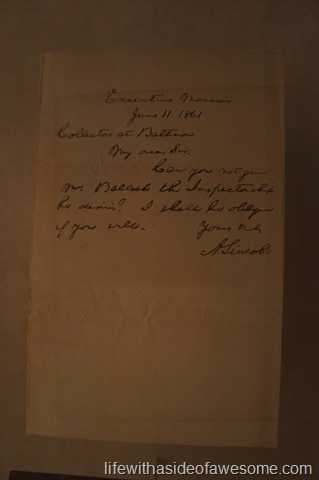 Executive Mansion
June 11. 1861
Collector at Baltimore
My dear Sir.
Can you not give
Mr. the Inspectorship
he desires? I shall be obliged
if you will. Yours truly
A. Lincoln
lifewithasideofawesome.com